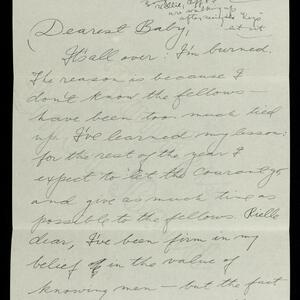 (Dearest Baby,
It's all over: I'm burned.
The reason is because I
don't know the fellows—
have been too much tied
up. I've learned my lesson:
for the rest of the year I
expect to let the Courant go
and give as much time as
possible to the fellows.
dear, I've been firm in my
belief in the value of
knowing men — but the fact